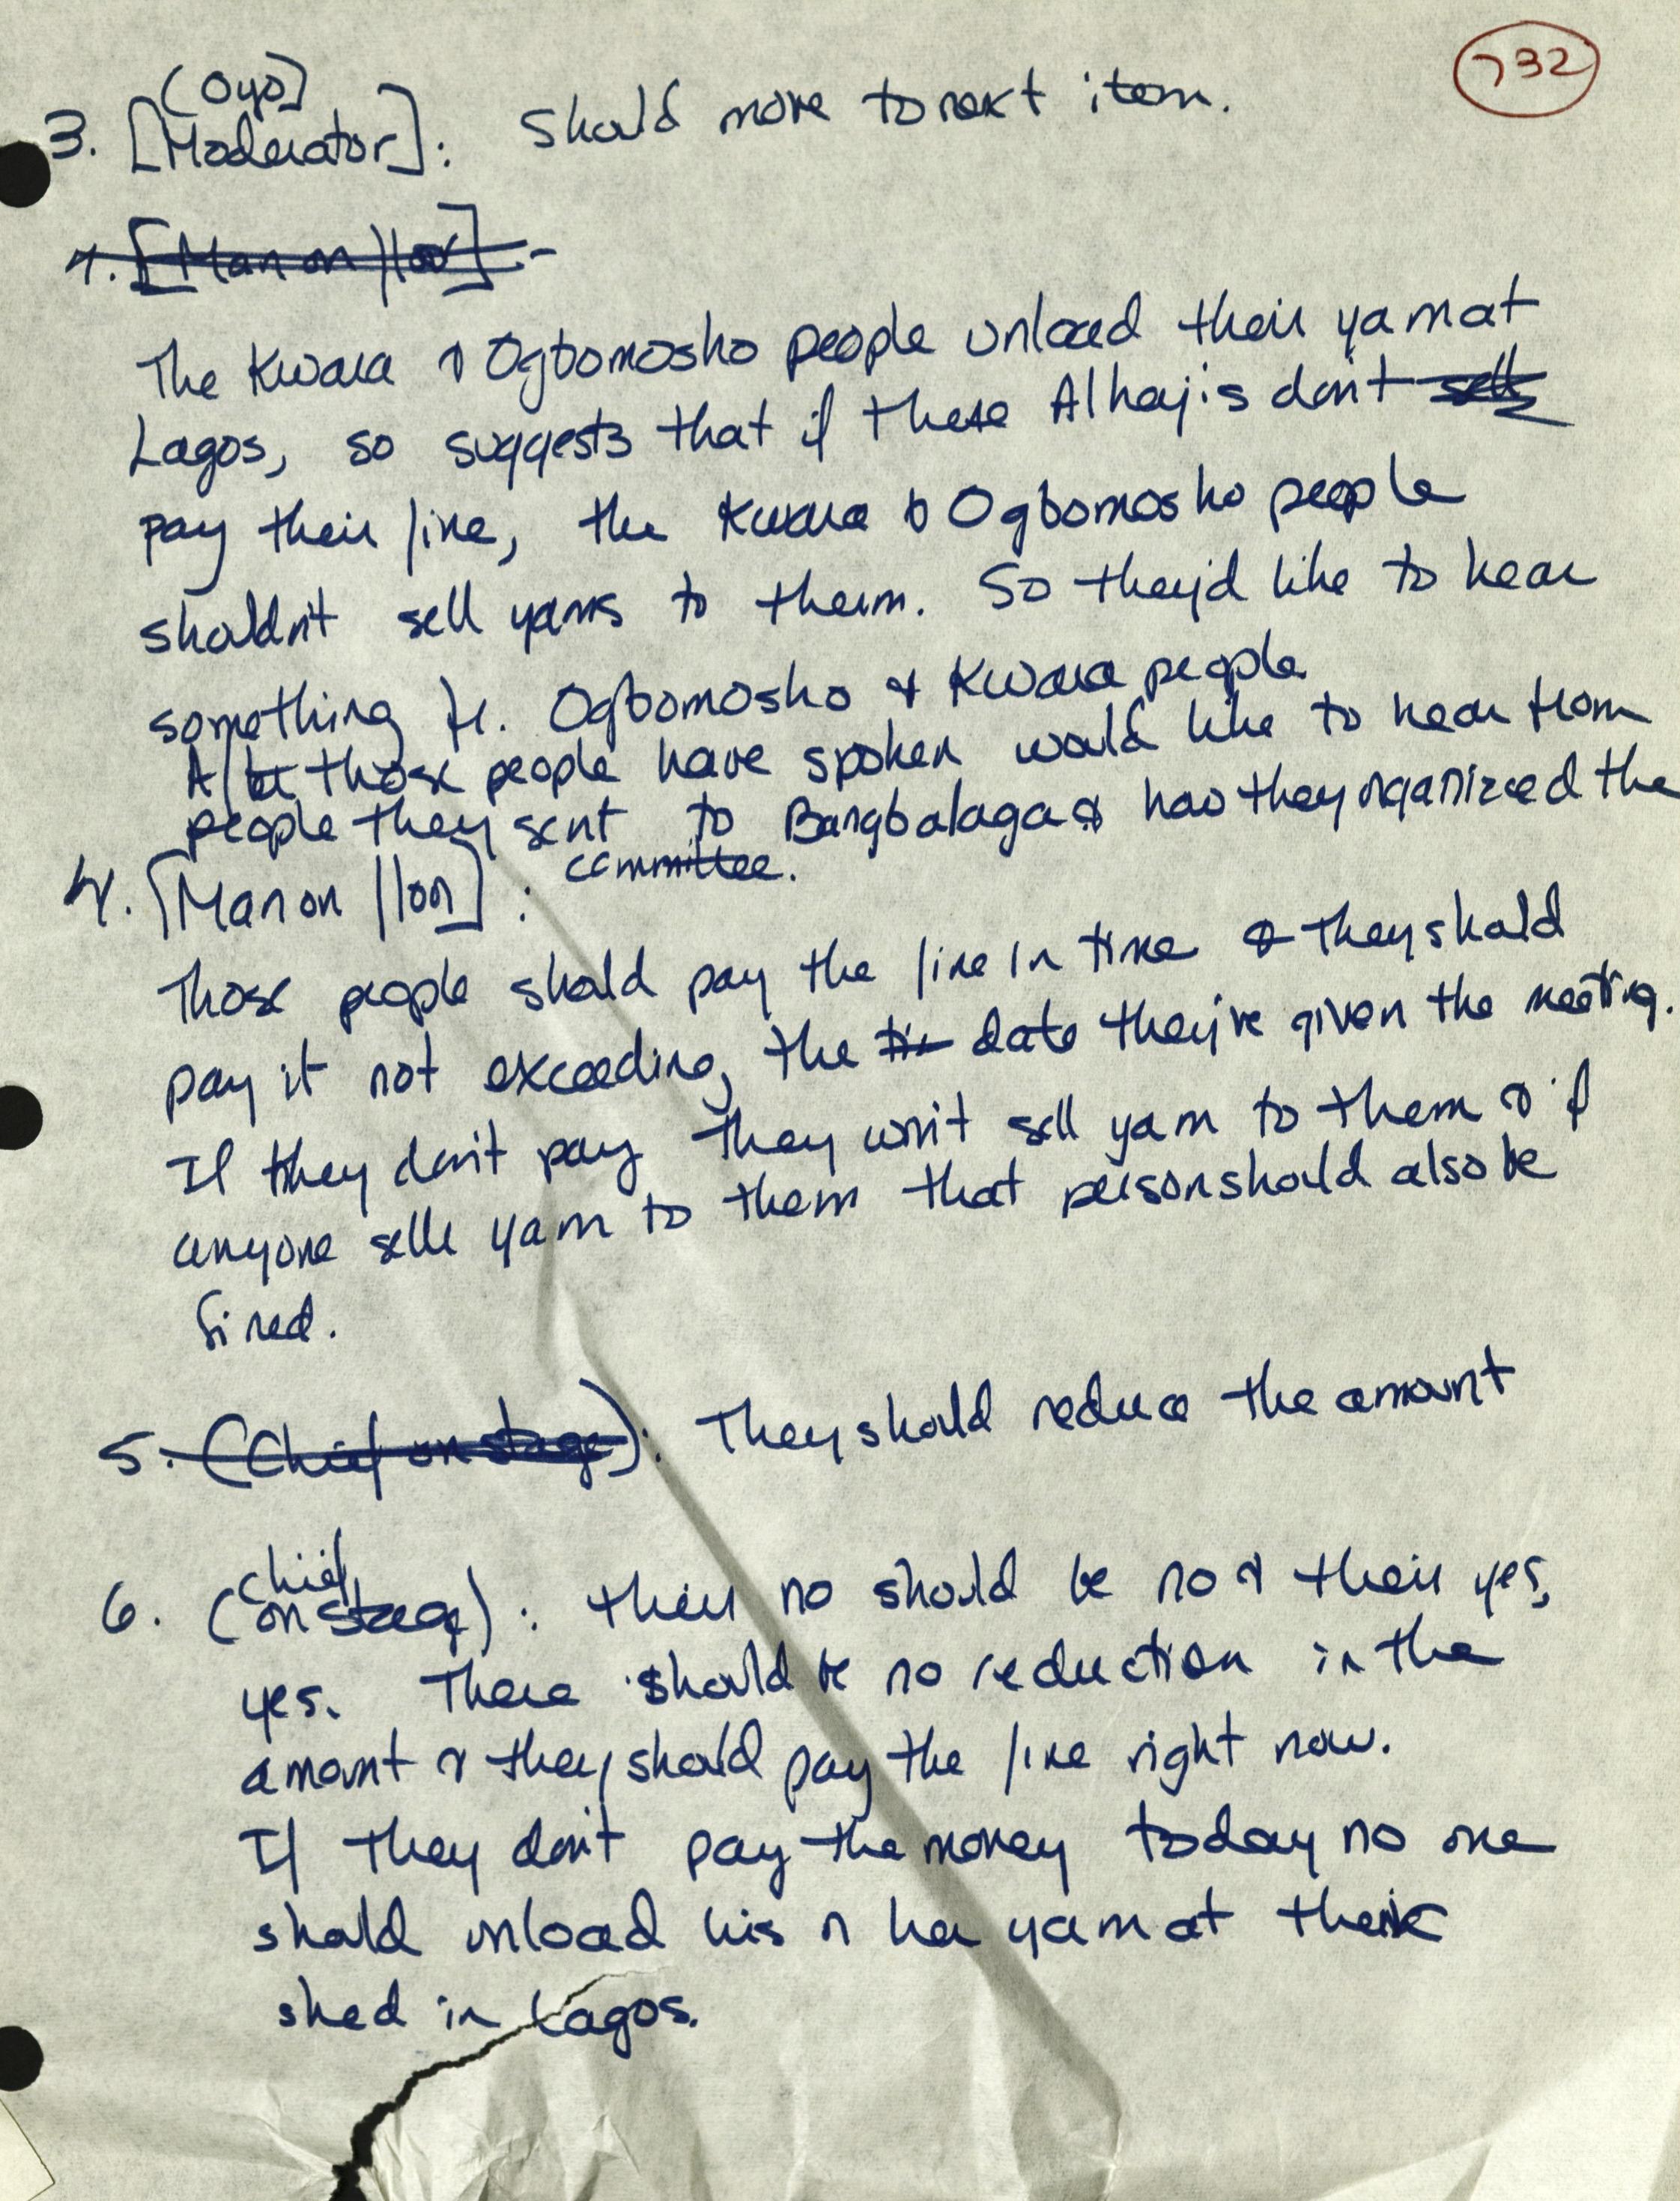 732
(Oyo]
3. [Moderator]: Should move to next item.
4. [Man on floor] -
The Kwara & Ogbomosho people unload their yam at
Lagos, so suggests that if these Alhajis don't sell
pay their fine, the Kwara & Ogbomosho people
shouldn't sell yams to them. So they'd like to hear
something fr. Ogbomosho & Kwara people
After those people have spoken would like to hear from
people they sent to Bangbalaga & how they organized the
committee.
4. [Man on floor] :
Those people should pay the fine in time & they should
pay it not exceeding the ti- date they've given the meeting.
If they don't pay they won't sell yam to them & if
anyone sells yam to them that person should also be
fined.
5. (Chief on stage): They should reduce the amount
chief
6. (on stage) : their no should be no & their yes,
yes. There should be no reduction in the
amount & they should pay the fine right now.
If they don't pay the money today no one
should unload his or her yam at their
shed in Lagos.